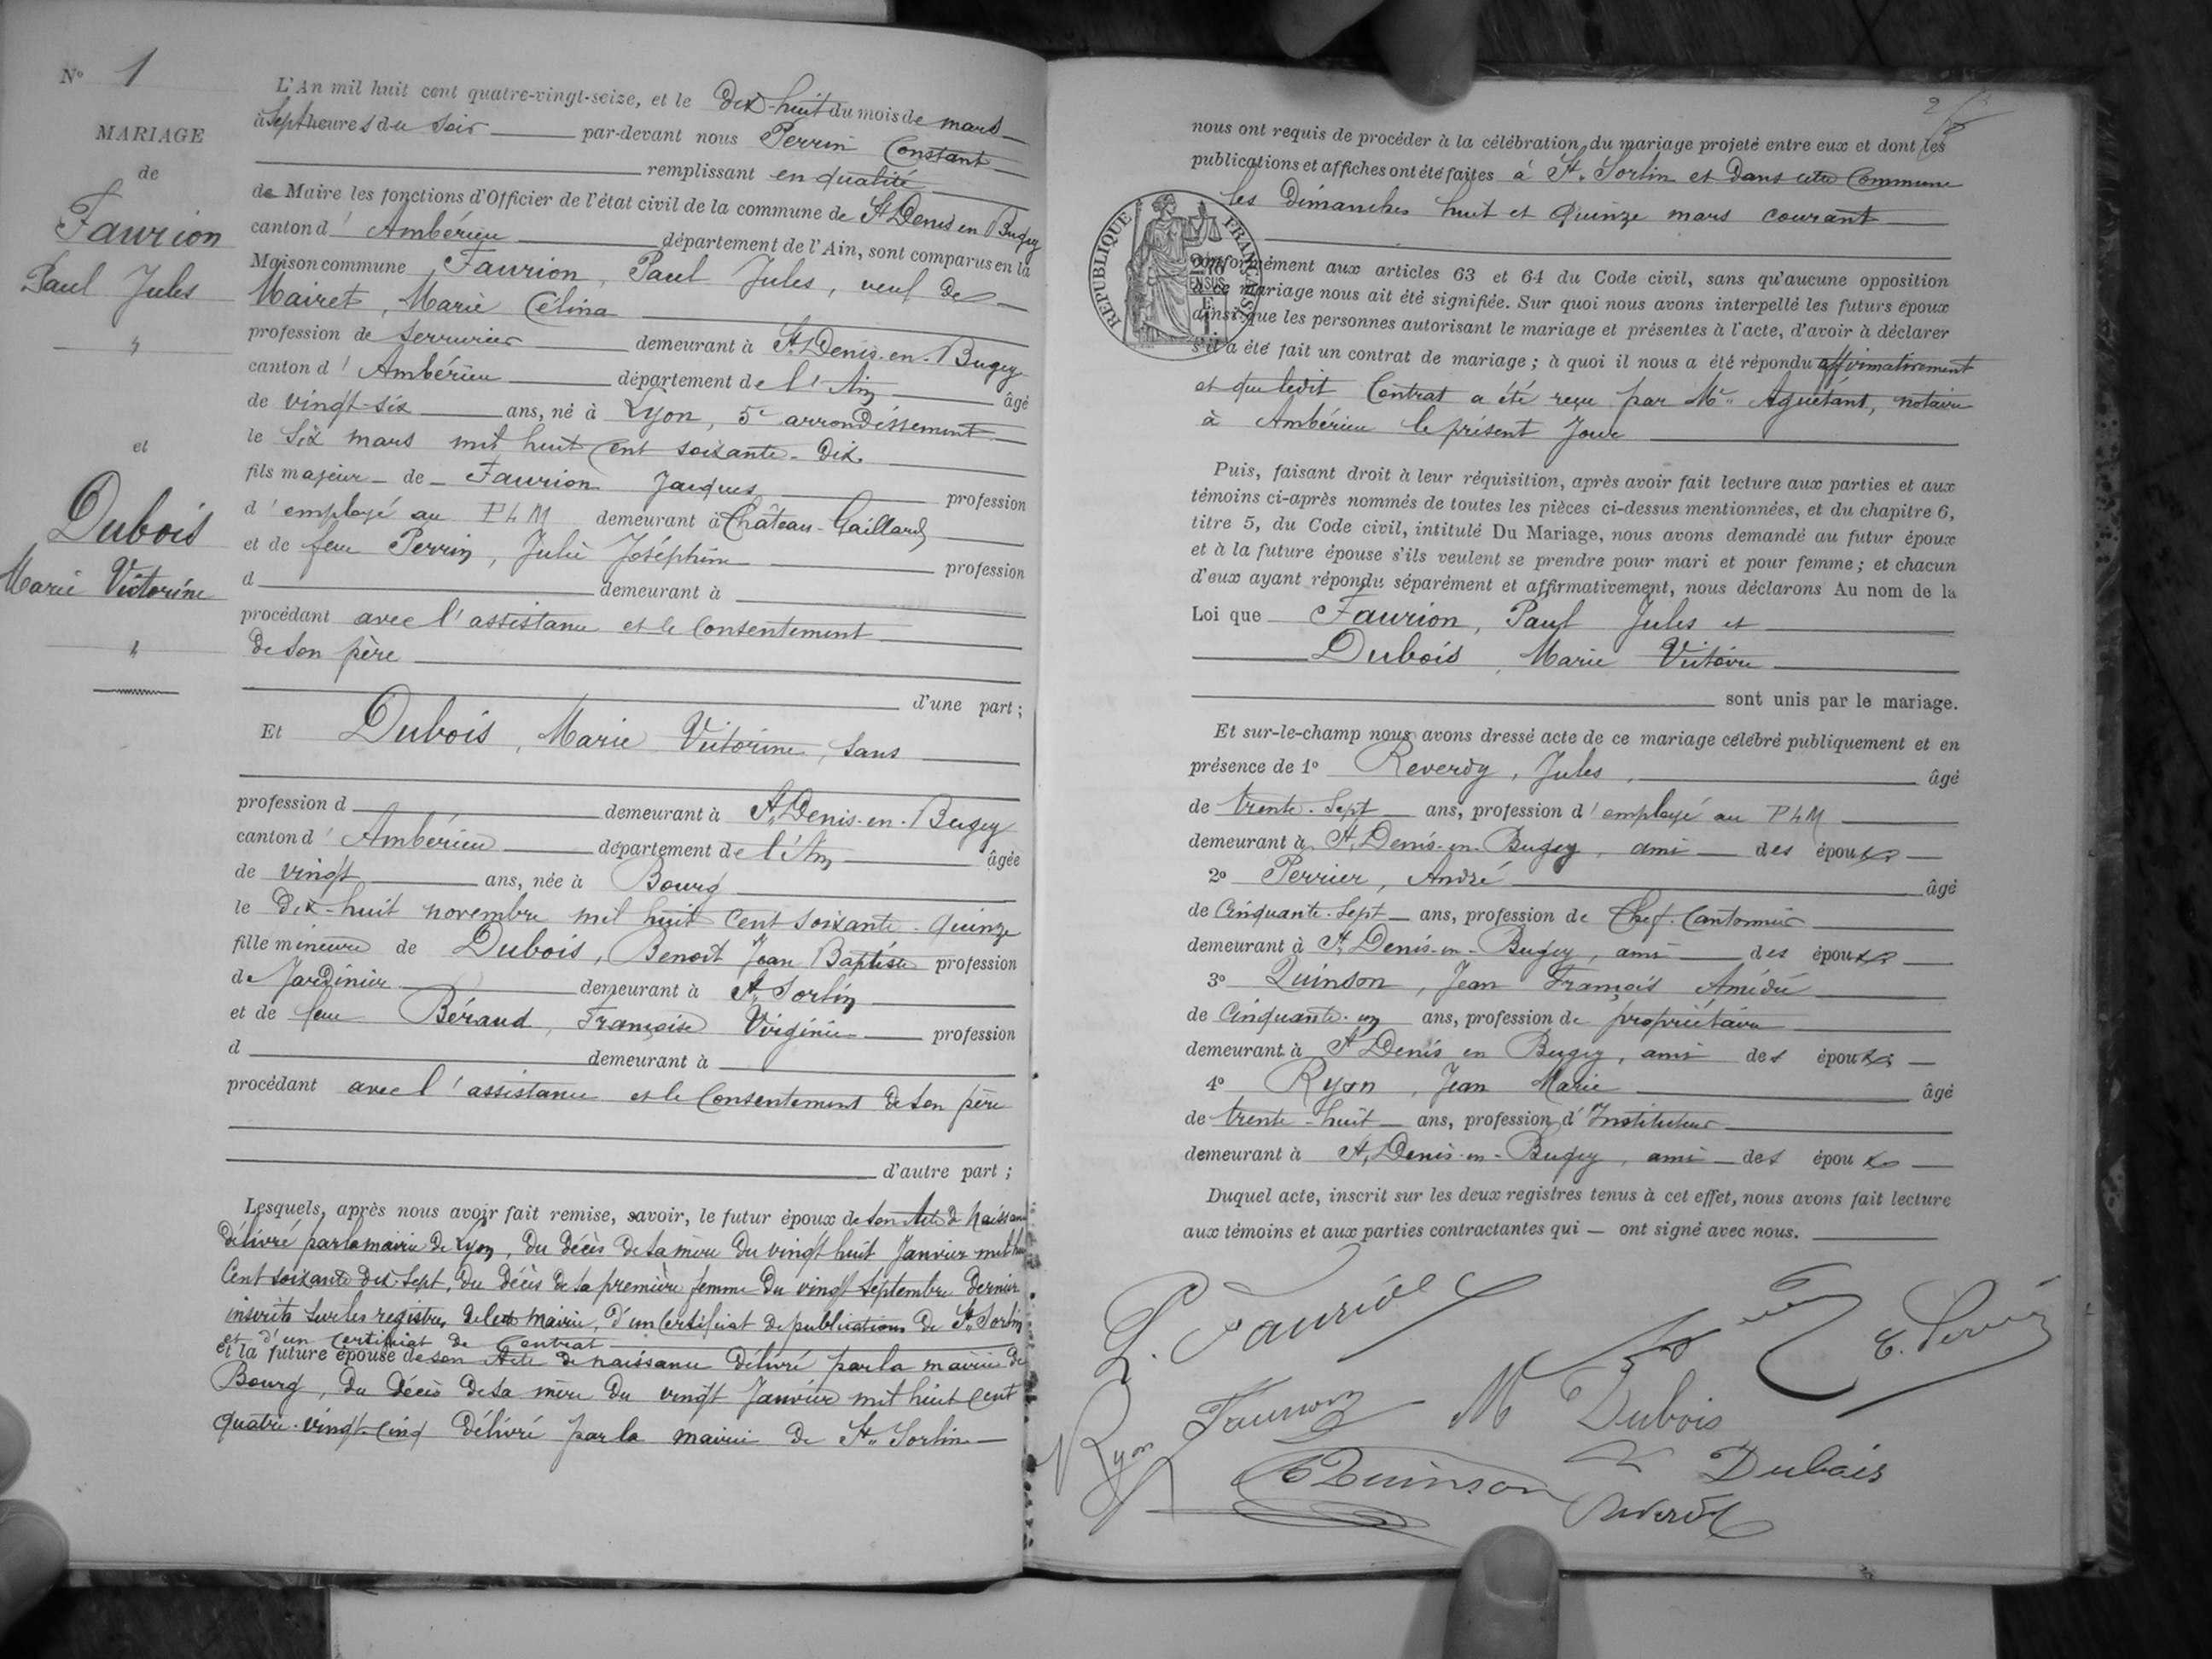 N° 1
MARIAGE
de
Faurion
Paul Jules
et
Dubois
Marie Victorine
L'An mil huit cent quatre-vingt-seize, et le dix-huit du mois de mars
à sept heures du soir par-devant nous Perrin Constant
remplissant en qualité
de Maire les fonctions d'Officier de l'état civil de la commune de St Denis en Bugey
canton d'Ambérieu département de l'Ain, sont comparus en la
Maison commune Faurion, Paul Jules, veuf de
Mairet, Marie Célina
profession de serrurier demeurant à St Denis-en-Bugey
canton d'Ambérieu département de l'Ain âgé
de vingt-six ans, né à Lyon, 5e arrondissement
le six mars mil huit cent soixante-dix
fils majeur de Faurion Jacques profession
d'employé au PLM demeurant à Château-Gaillard
et de feue Perrin, Julie Joséphine profession
d demeurant à
procédant avec l'assistance et le consentement
de son père
d'une part ;
Et Dubois, Marie Victorine, sans
profession d demeurant à St Denis-en-Bugey
canton d'Ambérieu département de l'Ain âgée
de vingt ans, née à Bourg
le dix-huit novembre mil huit cent soixante-quinze
fille mineure de Dubois, Benoit Jean Baptiste profession
de Jardinier demeurant à St Sorlin
et de feue Béraud, Françoise Virginie profession
d demeurant à
procédant avec l'assistance et le consentement de son père
d'autre part ;
Lesquels, après nous avoir fait remise, savoir, le futur époux de son acte de naissance
délivré par la mairie de Lyon, du décès de sa mère du vingt huit Janvier mil huit
cent soixante dix-sept, du décès de sa première femme du vingt septembre dernier
inscrits sur les registres de cette mairie, d'un certificat de publications de St Sorlin
et d'un certificat de contrat
et la future épouse de son acte de naissance délivré par la mairie de
Bourg, du décès de sa mère du vingt Janvier mil huit cent
quatre-vingt-cinq délivré par la mairie de St Sorlin
2
nous ont requis de procéder à la célébration du mariage projeté entre eux et dont les
publications et affiches ont été faites à St Sorlin et dans cette commune
les dimanches huit et quinze mars courant
RÉPUBLIQUE FRANÇAISE
conformément aux articles 63 et 64 du Code civil, sans qu'aucune opposition
à ce mariage nous ait été signifiée. Sur quoi nous avons interpellé les futurs époux
ainsi que les personnes autorisant le mariage et présentes à l'acte, d'avoir à déclarer
s'il a été fait un contrat de mariage ; à quoi il nous a été répondu affirmativement
et que ledit contrat a été reçu par Me Aguétant, notaire
à Ambérieu le présent jour
Puis, faisant droit à leur réquisition, après avoir fait lecture aux parties et aux
témoins ci-après nommés de toutes les pièces ci-dessus mentionnées, et du chapitre 6,
titre 5, du Code civil, intitulé Du Mariage, nous avons demandé au futur époux
et à la future épouse s'ils veulent se prendre pour mari et pour femme ; et chacun
d'eux ayant répondu séparément et affirmativement, nous déclarons Au nom de la
Loi que Faurion, Paul Jules et
Dubois, Marie Victoire
sont unis par le mariage.
Et sur-le-champ nous avons dressé acte de ce mariage célébré publiquement et en
présence de 1° Reverdy, Jules, âgé
de trente-sept ans, profession d'employé au PLM
demeurant à St Denis-en-Bugey, ami des époux
2° Perrier, André âgé
de cinquante-sept ans, profession de Chef-Cantonnier
demeurant à St Denis-en-Bugey, ami des époux
3° Quinson, Jean François Amédé
de cinquante-un ans, profession de propriétaire
demeurant à St Denis en Bugey, ami des époux
4° Ryon, Jean Marie âgé
de trente-huit ans, profession d'Instituteur
demeurant à St Denis-en-Bugey, ami des époux
Duquel acte, inscrit sur les deux registres tenus à cet effet, nous avons fait lecture
aux témoins et aux parties contractantes qui — ont signé avec nous.
Faurion
M Dubois
Ryon
Quinson
Dubois